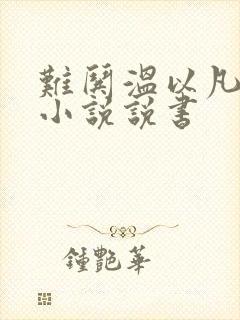 難鬨溫以凡
小說說書
鍾艷華